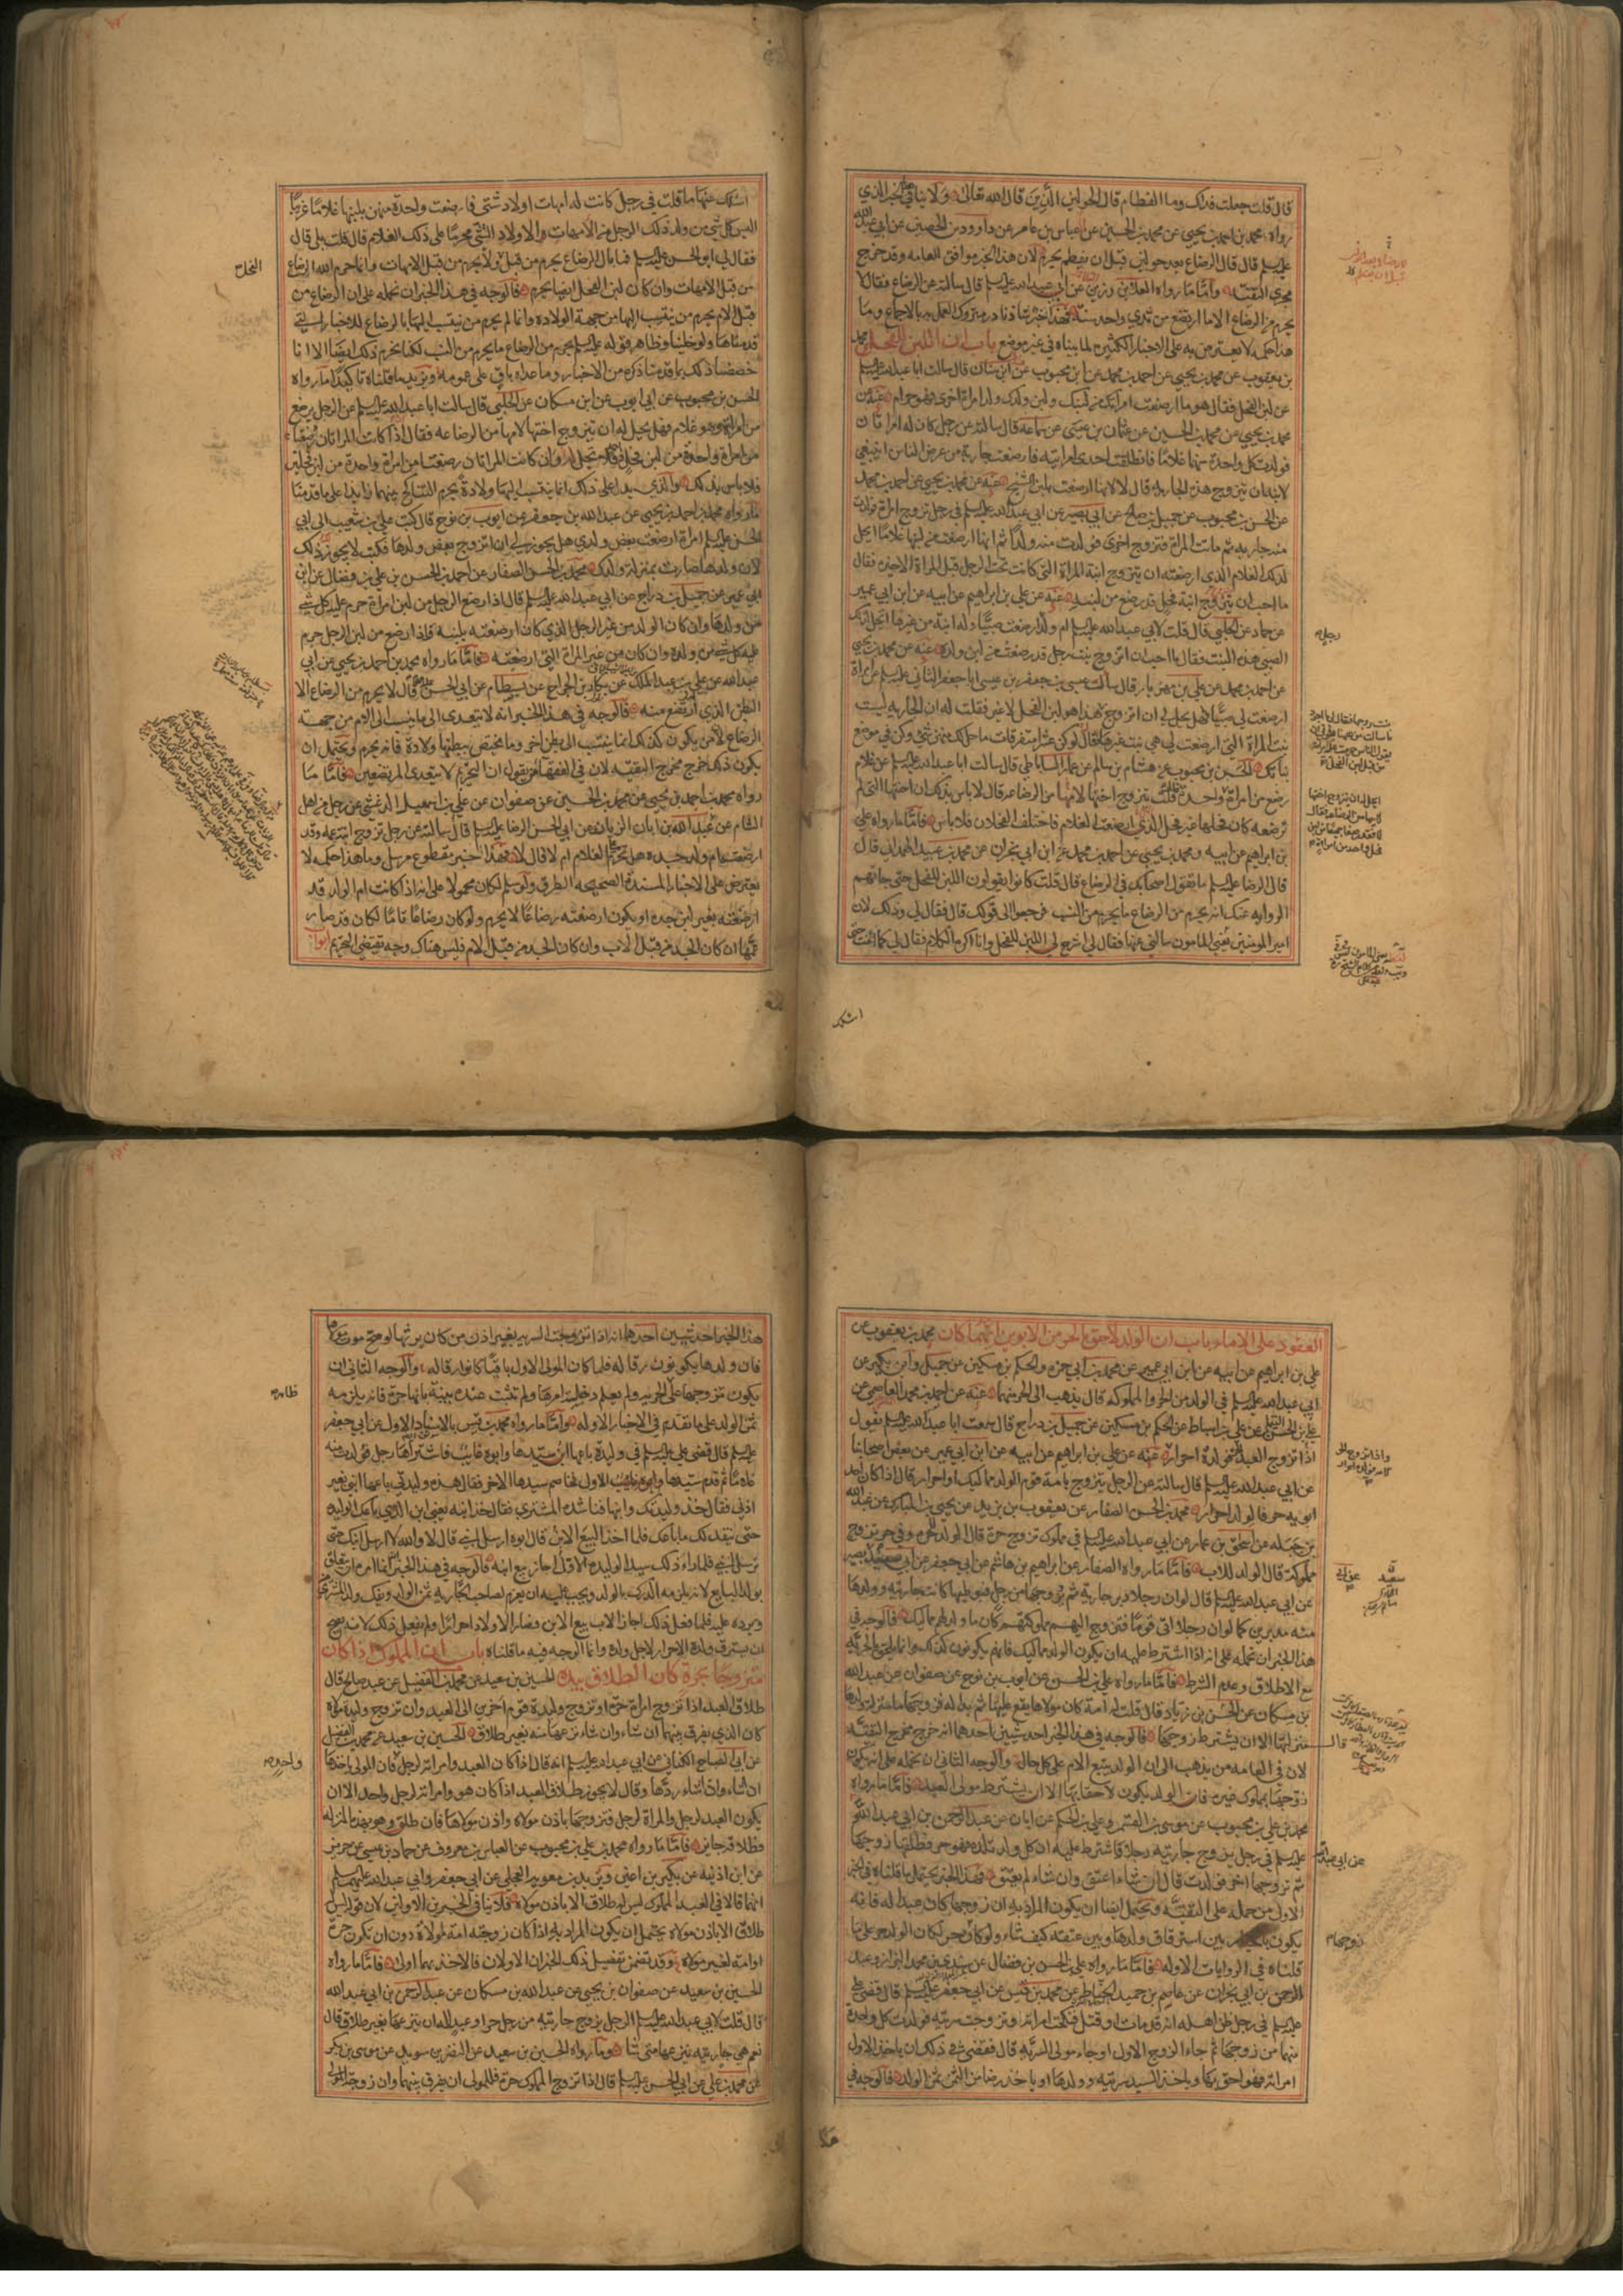 قال قلت جعلت فداك وما الفطام قال الحولين الذين قال الله تعالى ولا ينافي هذا الخبر الذي
رواه محمد بن احمد بن يحيى عن محمد بن الحسين عن العباس بن عامر عن داود بن الحصين عن ابي عبد الله
عليه السلام قال قال الرضاع بعد حولين قبل ان يفطم يحرم لان هذا الخبر موافق للعامة وقد خرج
مخرج التقية وأما ما رواه العلا بن رزين عن ابي عبد الله عليه السلام قال سالته عن الرضاع فقال لا
يحرم من الرضاع الا ما ارتضع من ثدي واحد سنة فهذا خبر شاذ نادر متروك العمل به بالاجماع وما
هذا حكمه لا يعترض به على الاخبار الكثيرة لما بيناه في غير موضع باب ان اللبن للفحل محمد
بن يعقوب عن محمد بن يحيى عن احمد بن محمد عن ابن محبوب عن ابن سنان قال سالت ابا عبد الله عليه السلام
عن لبن الفحل فقال هو ما ارضعت امراتك من لبنك ولبن ولدك ولد امراة اخرى فهو حرام عنه عن
محمد بن يحيى عن محمد بن الحسين عن عثمان بن عيسى عن سماعة قال سالته عن رجل كان له امراتان
فولدت كل واحدة منهما غلاما فانطلقت احدى امراتيه فارضعت جارية من عرض الناس اينبغي
لابنه ان يتزوج هذه الجارية قال لا لانها ارضعت بلبن الشيخ عنه عن محمد بن يحيى عن احمد بن محمد
عن الحسن بن محبوب عن جميل بن صالح عن ابي بصير عن ابي عبد الله عليه السلام في رجل تزوج امراة فولدت
منه جارية ثم ماتت المراة فتزوج اخرى فولدت منه ولدا ثم انها ارضعت من لبنها غلاما ايحل
لذلك الغلام الذي ارضعته ان يتزوج ابنة المراة التي كانت تحت الرجل قبل المراة الاخيرة فقال
ما احب ان يتزوج ابنة فحل قد رضع من لبنه عنه عن علي بن ابراهيم عن ابيه عن ابن ابي عمير
عن حماد عن الحلبي قال قلت لابي عبد الله عليه السلام ام ولد ارضعت صبيا وله ابنة من غيرها ايحل لذلك
الصبي هذه البنت فقال ما احب ان اتزوج بنت رجل قد رضعت من لبن ولده عنه عن محمد بن يحيى
عن احمد بن محمد عن علي بن مهزيار قال سال عيسى بن جعفر بن عيسى ابا جعفر الثاني عليه السلام عن امراة
ارضعت لي صبيا فهل يحل لي ان اتزوج
لبن الفحل لا غير فقلت له ان الجارية ليست
بنت المراة التي ارضعت لي هي بنت غيرها فقال لو كن عشرا متفرقات ما حل لك منهن شي وكن في موضع
بناتك الحسن بن محبوب عن هشام بن سالم عن عمار الساباطي قال سالت ابا عبد الله عليه السلام عن غلام
رضع من امراة واحدة قلت يتزوج اختها لامها من الرضاعة قال لا باس بذلك ان اختها التي لم
ترضعه كان فحلها غير فحل الذي ارضعت الغلام فاختلف الفحلان فلا باس فأما ما رواه علي
بن ابراهيم عن ابيه ومحمد بن يحيى عن احمد بن محمد عن ابن ابي نجران عن محمد بن عبيد الهمداني قال
قال الرضا عليه السلام ما يقول اصحابك في الرضاع قال قلت كانوا يقولون اللبن للفحل حتى جاءتهم
الرواية عنك انه يحرم من الرضاع ما يحرم من النسب فرجعوا الى قولك قال فقال لي وذلك لان
امير المومنين يعني المامون سالني عنها فقال لي اشرح لي اللبن للفحل وانا اكره الكلام فقال لي كما انت حتى
اسالك
اسالك عنها ما قلت في رجل كانت له امهات اولاد شتى فارضعت واحدة منهن بلبنها غلاما غريبا
اليس كل شي من ولد ذلك الرجل من الامهات والاولاد الشتى محرما على ذلك الغلام قال قلت بلى قال
فقال لي ابو الحسن عليه السلام فما بال الرضاع يحرم من قبل ولا يحرم من قبل الامهات وانما حرم الله الرضاع
من قبل الامهات وان كان لبن الفحل ايضا يحرم فالوجه في هذا الخبر ان نحمله على ان الرضاع من
قبل الام يحرم من ينتسب اليها من جهة الولادة وانما لم يحرم من ينتسب اليها بالرضاع للاخبار التي
قدمناها ولو خلينا وظاهر قوله عليه السلام يحرم من الرضاع ما يحرم من النسب لكنا نحرم ذلك ايضا الا انا
خصصنا ذلك بما قدمنا ذكره من الاخبار وما عداه باق على عمومه ويزيد ما قلناه تاكيدا ما رواه
الحسن بن محبوب عن ابي ايوب عن ابن مسكان عن الحلبي قال سالت ابا عبد الله عليه السلام عن الرجل يرضع
من امراة وهو غلام فهل يحل له ان يتزوج اختها لامها من الرضاعة فقال اذا كانت المراتان رضعتا
من امراة واحدة من لبن فحل واحد فلا تحل وان كانت المراتان رضعتا من امراة واحدة من لبن فحلين
فلا باس بذلك والذي يدل على ذلك انما ينتسب اليها ولادة يحرم التناكح عنهما زايدا على ما قدمنا
ما رواه محمد بن احمد بن يحيى عن عبد الله بن جعفر عن ايوب بن نوح قال كتب علي بن شعيب الى ابي
الحسن عليه السلام امراة ارضعت بعض ولدي هل يجوز لي ان اتزوج بعض ولدها فكتب لا يجوز ذلك
لان ولدها صارت بمنزلة ولدك محمد بن الحسن الصفار عن احمد بن الحسن بن علي بن فضال عن ابن
ابي عمير عن جميل بن دراج عن ابي عبد الله عليه السلام قال اذا رضع الرجل من لبن امراة حرم عليه كل شي
من ولدها وان كان الولد من غير الرجل الذي كان ارضعته بلبنه فاذا ارضع من لبن الرجل حرم
عليه كل شي من ولده وان كان من غير المراة التي ارضعته فأما ما رواه محمد بن احمد بن يحيى عن ابي
عبد الله عن علي بن عبد الملك عن بكار بن الجراح عن بسطام عن ابي الحسن قال لا يحرم من الرضاع الا
البطن الذي ارتضع منه فالوجه في هذا الخبر انه لا يتعدى الى ما ينسب الى الام من جهة
الرضاع لا من يكون كذلك انما ينتسب الى بطن اخر وما يختص ببطنها ولادة فانه يحرم ويحتمل ان
يكون ذلك خرج مخرج التقية لان في الفقهاء من يقول ان التحريم لا يتعدى المرتضعين فأما ما
رواه محمد بن احمد بن يحيى عن محمد بن الحسين عن صفوان عن علي بن اسمعيل الدغشي عن رجل من اهل
الشام عن عبد الله بن ابان الزيات عن ابي الحسن الرضا عليه السلام قال سالته عن رجل تزوج ابنة عمه وقد
ارضعته ام ولد جده هل تحرم على الغلام ام لا قال لا فهذا خبر مقطوع مرسل وما هذا حكمه لا
يعترض على الاخبار المسندة الصحيحة الطرق ولو سلم لكان محمولا على انه اذا كانت ام الولد قد
ارضعته بغير لبن جده او يكون ارضعته رضاعا لا يحرم ولو كان رضاعا تاما لكان قد صار
عمها ان كان الجد من قبل الاب وان كان الجد من قبل الام فليس هناك وجه تقتضي التحريم ابواب
العقود على الاماء باب ان الولد لاحق بالحر من الابوين ايهما كان محمد بن يعقوب عن
علي بن ابراهيم عن ابيه عن ابن ابي عمير عن محمد بن ابي حمزة والحكم بن مسكين عن جميل وابن بكير عن
ابي عبد الله عليه السلام في الولد من الحر والمملوكة قال يذهب الى الحر منهما عنه عن احمد بن محمد العاصمي عن
علي بن الحسن عن علي بن اسباط عن الحكم بن مسكين عن جميل بن دراج قال سمعت ابا عبد الله عليه السلام يقول
اذا تزوج العبد الحرة فولده احرار عنه عن علي بن ابراهيم عن ابيه عن ابن ابي عمير عن بعض اصحابنا
عن ابي عبد الله عليه السلام قال سالته عن الرجل يتزوج بامة قوم الولد مماليك او احرار قال اذا كان احد
ابويه حر فالولد احرار محمد بن الحسن الصفار عن يعقوب بن يزيد عن يحيى بن المبارك عن عبد الله
بن جبلة عن اسحق بن عمار عن ابي عبد الله عليه السلام في مملوك تزوج حرة قال الولد للحرة وفي حر تزوج
مملوكة قال الولد للاب فأما ما رواه الصفار عن ابراهيم بن هاشم عن ابي جعفر عن ابي بصير
عن ابي عبد الله عليه السلام قال لو ان رجلا دبر جارية ثم زوجها من رجل فوطيها كانت جاريته وولدها
منه مدبرين كما لو ان رجلا اتى قوما فتزوج اليهم مملوكتهم كان ما ولد لهم مماليك فالوجه في
هذا الخبر ان نحمله على انه اذا اشترط عليه ان يكون الولد مماليك فانهم يكونون كذلك وانما يلحق بالحرية
مع الاطلاق وعدم الشرط فأما ما رواه علي بن الحسن عن ايوب بن نوح عن صفوان عن عبد الله
بن مسكان عن الحسن بن زياد قال قلت له امة كان مولاها يقع عليها ثم بدا له فزوجها ما منزلة ولدها
قال بمنزلتها الا ان يشترط زوجها فالوجه في هذا الخبر احد شيئين احدهما انه خرج مخرج التقية
لان في العامة من يذهب الى ان الولد يتبع الام على كل حال والوجه الثاني ان نحمله على انه يكون
زوجها بمملوك غيره فان الولد يكون لاحقا بها الا ان يشترط مولى العبد فأما ما رواه
محمد بن علي بن محبوب عن موسى بن القسم وعلي بن الحكم عن ابان عن عبد الرحمن بن ابي عبد الله
عليه السلام في رجل يزوج جاريته رجلا فاشترط عليه ان كل ولد تلده فهو حر فطلقها زوجها
ثم تزوجها اخر فولدت قال ان شاء اعتق وان شاء لم يعتق فهذا الخبر يحتمل ما قلناه في الخبر
الاول من حمله على التقية ويحتمل ايضا ان يكون المراد به ان زوجها كان عبدا له فانه
يكون بالخيار بين استرقاق ولدها وبين عتقه كيف شاء ولو كان حر لكان الولد حر على ما
قلناه في الروايات الاولة فأما ما رواه علي بن الحسن بن فضال عن سندي بن محمد البزاز وعبد
الرحمن بن ابي نجران عن عاصم بن حميد الحناط عن محمد بن قيس عن ابي جعفر عليه السلام قال قضى علي
عليه السلام في رجل ظن اهله انه قد مات او قتل فنكحت امراته وتزوجت سريته فولدت كل واحدة
منهما من زوجها ثم جاء الزوج الاول او جاء مولى السرية قال فقضى في ذلك ان ياخذ الاول
امراته فهو احق بها وياخذ السيد سريته وولدها او ياخذ رضا من الثمن ثمن الولد فالوجه في
هذا
هذا الخبر احد شيئين احدهما انه اذا تزوجت السرية بغير اذن من كان يرثها لو صح موت مولاها
فان ولدها يكونون رقا له فلما كان المولى الاول باقيا كانوا رقا له والوجه الثاني ان
يكون تزوجها على الحرية ولم يعلم دخيلة امرها ولم تثبت عنده بينة بانها حرة فانه يلزمه
ثمن الولد على ما تقدم في الاخبار الاوله وأما ما رواه محمد بن قيس بالاسناد الاول عن ابي جعفر
عليه السلام قال قضى علي عليه السلام في وليدة باعها ابن سيدها وابوه غايب فاشتراها رجل فولدت منه
غلاما ثم قدم سيدها الاول فخاصم سيدها الاخر فقال هذه وليدتي باعها ابني بغير
اذني فقال خذ وليدتك وابنها فناشده المشتري فقال خذ ابنه يعني ابن الذي باعك الوليدة
حتى ينقد لك ما باعك فلما اخذ البيع الابن قال ابوه ارسل ابني قال لا والله لا ارسل ابنك حتى
ترسل ابني فلما راى ذلك سيد الوليدة الاول اجاز بيع ابنه فالوجه في هذا الخبر انه انما امر ان يتعلق
بولد البايع لانه يلزمه الدرك بالولد ويجب عليه ان يغرم لصاحب الجارية ثمن الولد ويفك ولد المشتري
ويرده عليه فلما فعل ذلك اجاز الاب بيع الابن فصار الاولاد احرارا ولم يفعل ذلك لانه يصح
ان يسترق ولده الاحرار لاجل ولده وانما الوجه فيه ما قلناه باب ان المملوك اذا كان
متزوجا بحرة كان الطلاق بيده الحسين بن سعيد عن محمد بن الفضيل عن عبد صالح قال
طلاق العبد اذا تزوج امراة حرة او تزوج وليدة قوم اخرين الى العبد وان تزوج وليدة مولاه
كان الذي يفرق بينهما ان شاء وان شاء نزعها منه بغير طلاق الحسين بن سعيد عن محمد بن الفضيل
عن ابي الصباح الكناني عن ابي عبد الله عليه السلام انه قال اذا كان العبد وامراته لرجل فان المولى ياخذها
ان شاء واذا شاء ردها وقال لا يجوز طلاق العبد اذا كان هو وامراته لرجل واحد الا ان
يكون العبد لرجل والمراة لرجل فتزوجها باذن مولاه واذن مولاها فان طلق وهو بهذه المنزلة
فطلاقه جايز فأما ما رواه محمد بن علي بن محبوب عن العباس بن معروف عن حماد بن عيسى عن حريز
عن ابن اذينة عن بكير بن اعين وبريد بن معوية العجلي عن ابي جعفر وابي عبد الله عليهما السلام
انهما قالا في العبد المملوك ليس له طلاق الا باذن مولاه فلا ينافي الخبرين الاولين لان قوله ليس
طلاق الا باذن مولاه يحتمل ان يكون المراد به اذا كان زوجته امة لمولاه دون ان يكون حرة
او امة لغير مولاه وقد تضمن تفصيل ذلك الخبران الاولان فالاخذ بهما اولى فأما ما رواه
الحسين بن سعيد عن صفوان بن يحيى عن عبد الله بن مسكان عن عبد الرحمن بن ابي عبد الله
قال قلت لابي عبد الله عليه السلام الرجل يزوج جاريته من رجل حر او عبد اله ان ينزعها بغير طلاق قال
نعم هي جاريته ينزعها متى شا وما رواه الحسين بن سعيد عن النضر بن سويد عن موسى بن بكر
عن محمد بن علي عن ابي الحسن عليه السلام قال اذا تزوج المملوك حرة فللمولى ان يفرق بينهما وان زوجه المولى